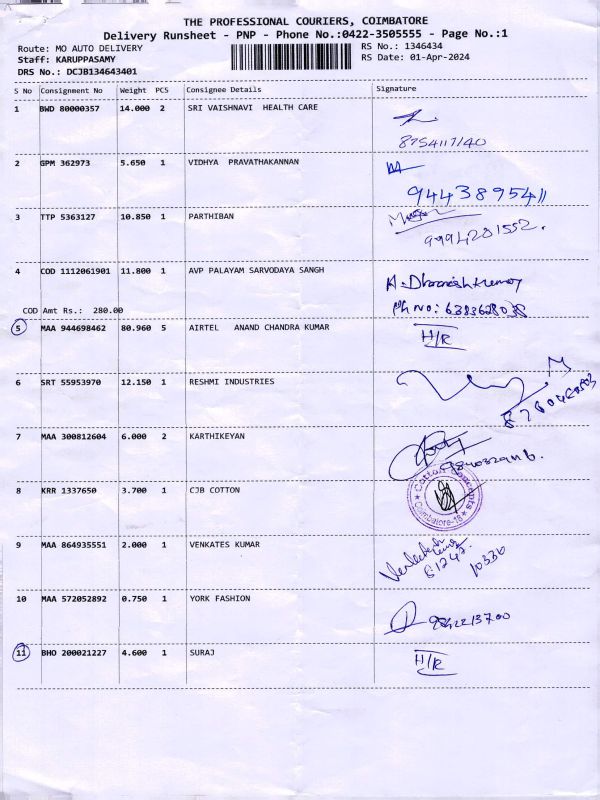 THE PROFESSIONAL COURIERS, COIMBATORE
Delivery Runsheet - PNP - Phone No.:0422-3505555 - Page No.:1
Route: MO AUTO DELIVERY RS No.: 1346434
Staff: KARUPPASAMY RS Date: 01-Apr-2024
DRS No.: DCJB134643401
S No Consignment No Weight PCS Consignee Details Signature
1 BWD 80000357 14.000 2 SRI VAISHNAVI HEALTH CARE
8754117140
2 GPM 362973 5.650 1 VIDHYA PRAVATHAKANNAN
9443895411
3 TTP 5363127 10.850 1 PARTHIBAN
9994201552.
4 COD 1112061901 11.800 1 AVP PALAYAM SARVODAYA SANGH
Ph No: 6383628038
COD Amt Rs.: 280.00
5 MAA 944698462 80.960 5 AIRTEL ANAND CHANDRA KUMAR
H/R
6 SRT 55953970 12.150 1 RESHMI INDUSTRIES
7 MAA 300812604 6.000 2 KARTHIKEYAN
8 KRR 1337650 3.700 1 CJB COTTON
Cotton Concepts
Coimbatore-18
9 MAA 864935551 2.000 1 VENKATES KUMAR
81242
10336
10 MAA 572052892 0.750 1 YORK FASHION
9842213700
11 BHO 200021227 4.600 1 SURAJ
H/R